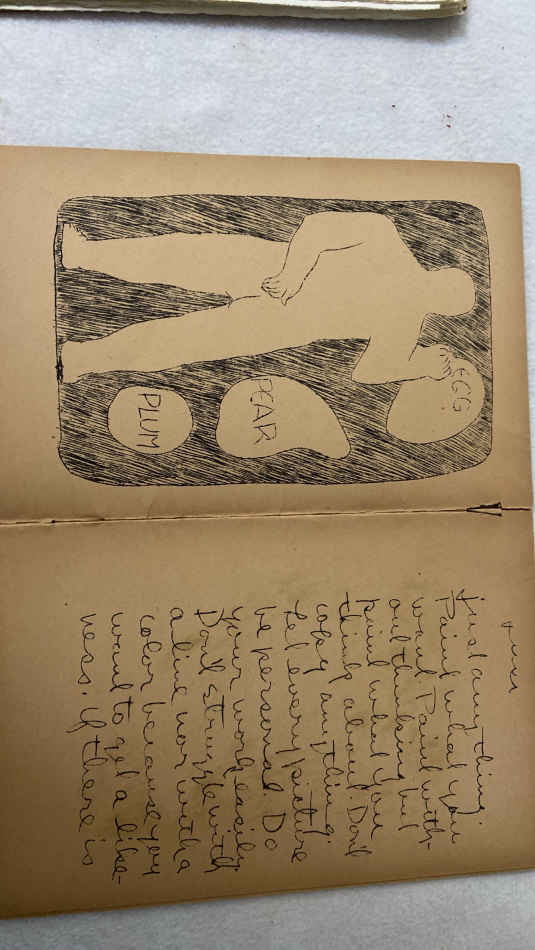 EGG
PEAR
PLUM
just anything.
Paint what you
want. Paint with-
out thinking but
paint what you
think about. Don't
copy anything.
Let every picture
be personal. Do
your work easily
Don't struggle with
a line nor with a
color because you
want to get a like-
ness. If there is